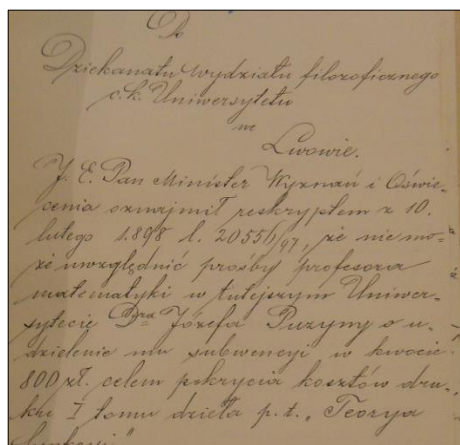 Do
Dziekanatu wydziału filozoficznego
c.k. Uniwersytetu
we
Lwowie.
J. E. Pan Minister Wyznań i Oświe-
cenia oznajmił reskryptem z 10.
lutego 1898 l. 20556/97, że nie mo=
że uwzględnić prośby profesora
matematyki w tutejszym Uniwer-
sytecie Dra Józefa Puzyny o u-
dzielenie mu subwencyi w kwocie
800 zł. celem pokrycia kosztów dru-
ku I tomu dzieła p.t. „Teorya
funkcyi"